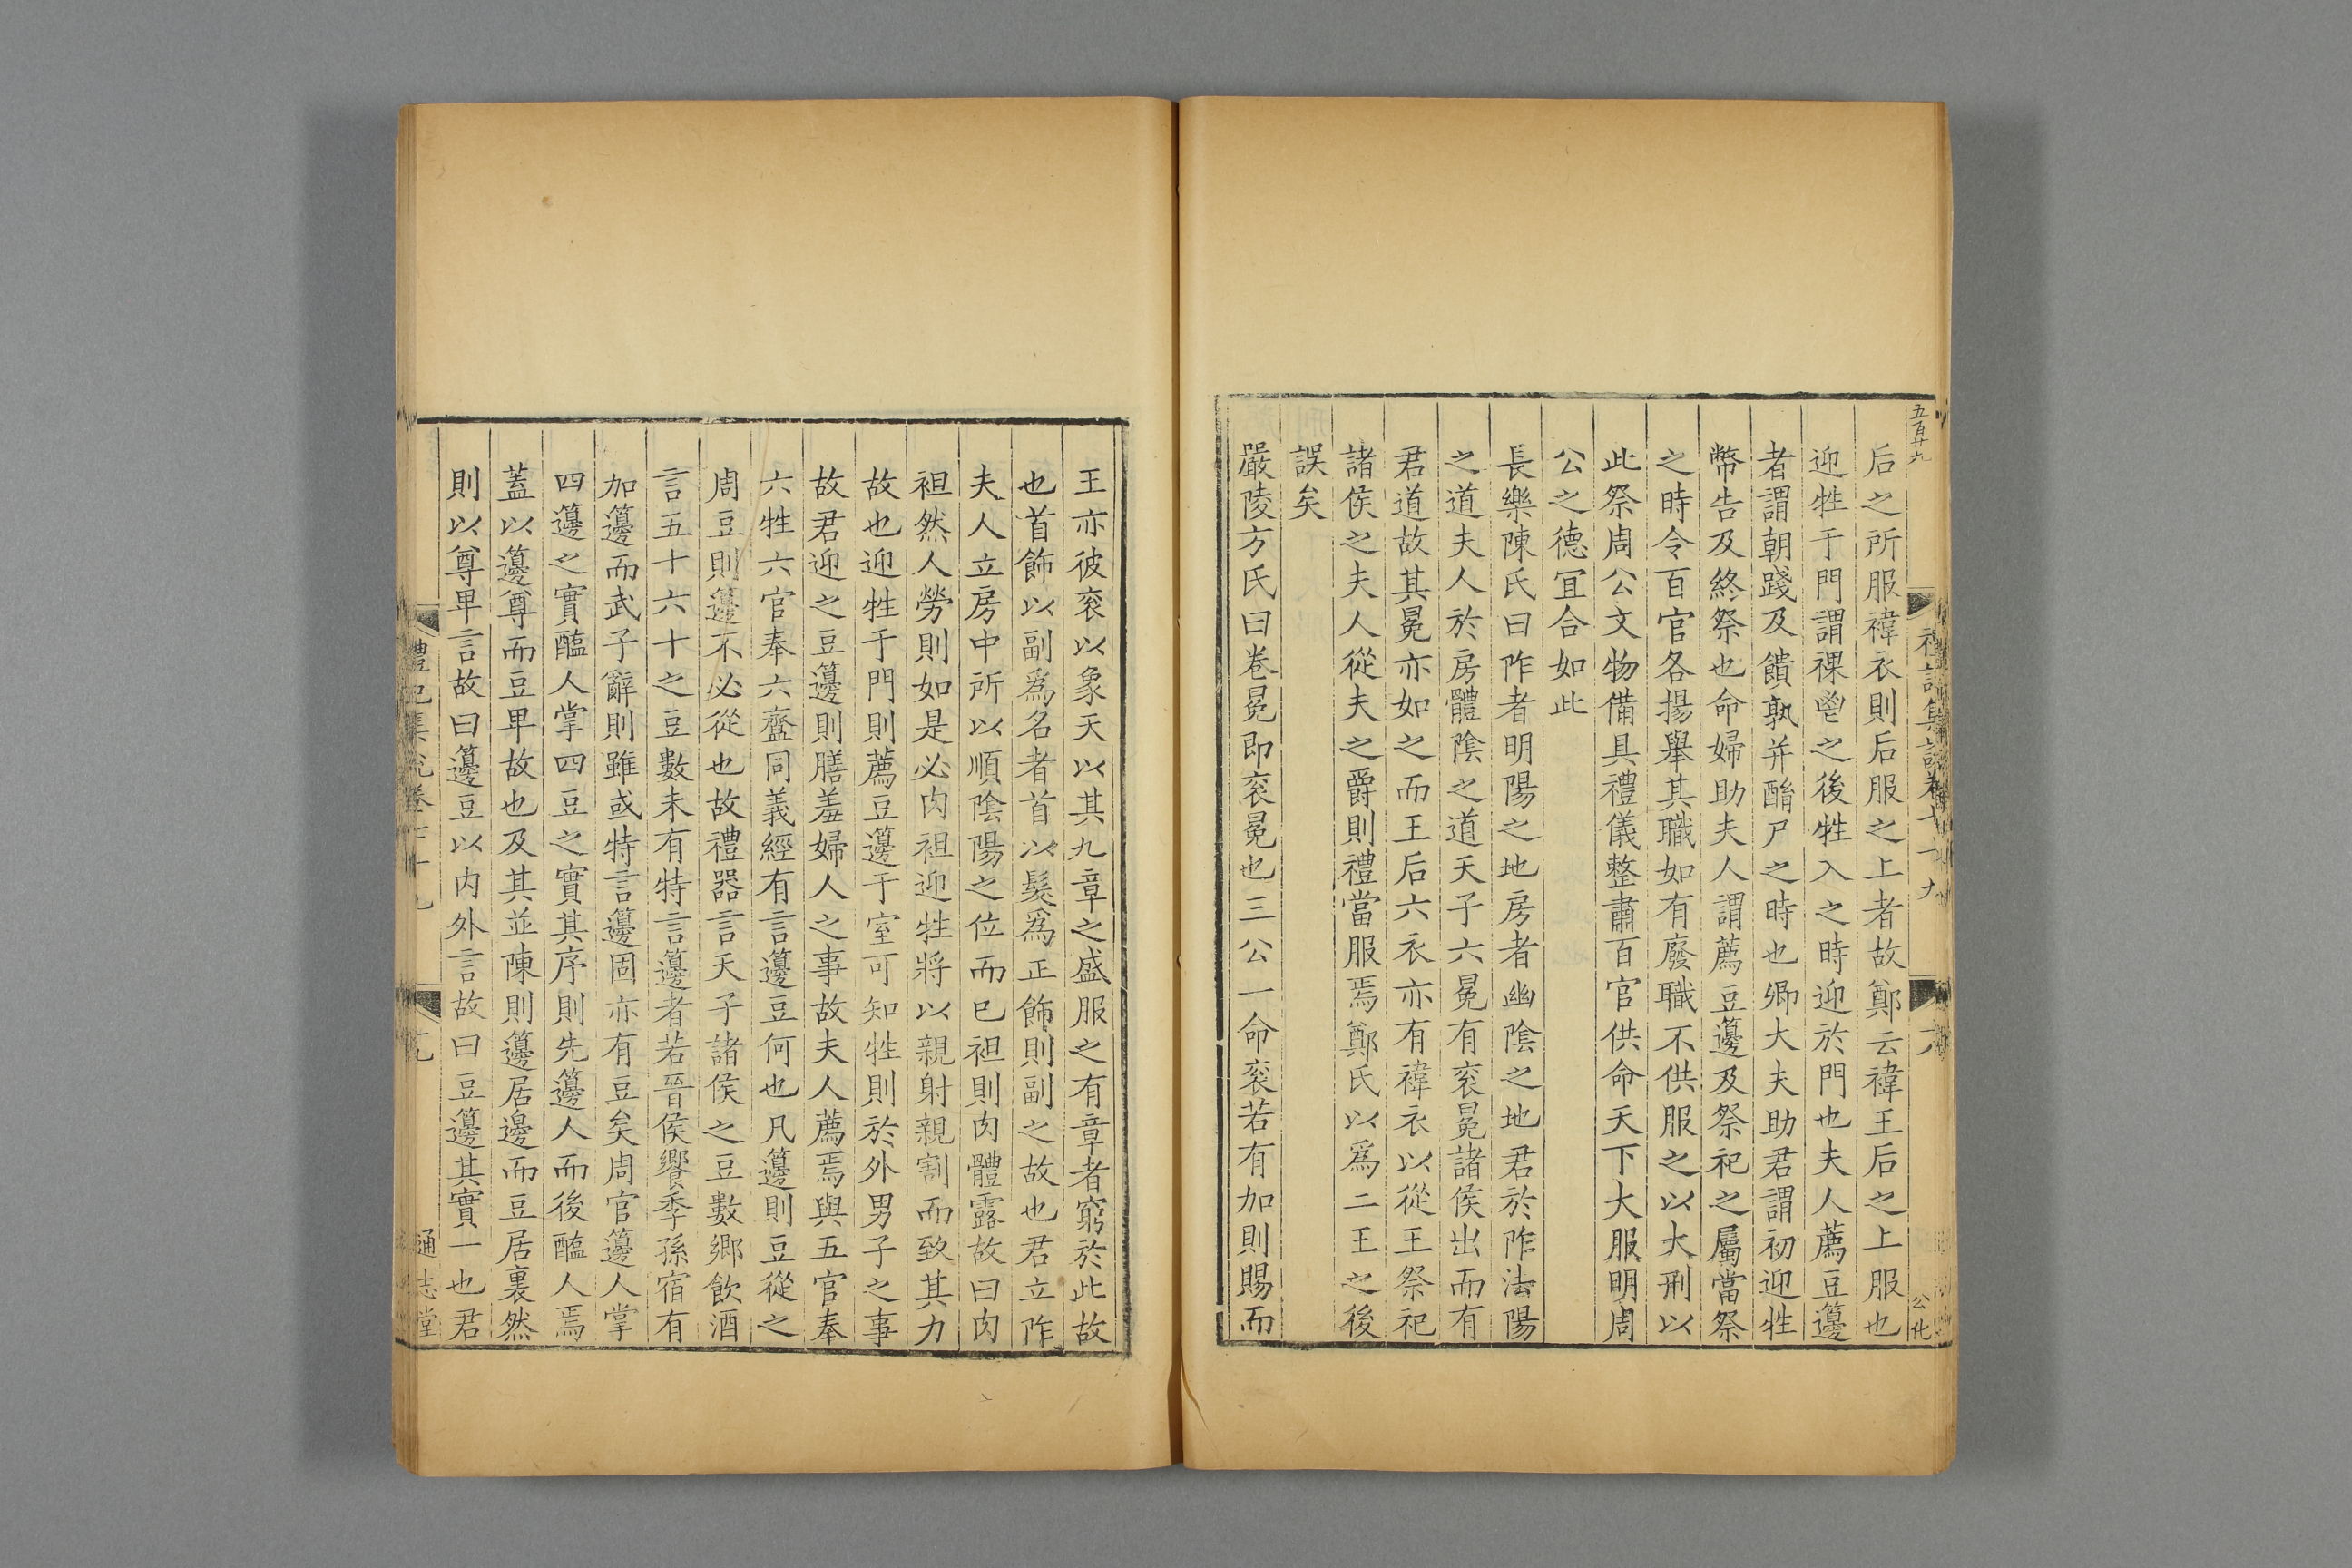 五百廿九
后之所服褘衣則后服之上者故鄭云褘王后之上服也
迎牲于門謂祼鬯之後牲入之時迎於門也夫人薦豆籩
者謂朝踐及饋孰并酳尸之時也卿大夫助君謂初迎牲
幣告及終祭也命婦助夫人謂薦豆籩及祭祀之屬當祭
之時令百官各揚舉其職如有廢職不供服之以大刑以
此祭周公文物備具禮儀整肅百官供命天下大服明周
公之德宜合如此
長樂陳氏曰阼者明陽之地房者幽陰之地君於阼法陽
之道夫人於房體陰之道天子六冕有衮冕諸侯出而有
君道故其冕亦如之而王后六衣亦有褘衣以從王祭祀
諸侯之夫人從夫之爵則禮當服焉鄭氏以爲二王之後
誤矣
嚴陵方氏曰卷冕即衮冕也三公一命衮若有加則賜而
王亦彼衮以象天以其九章之盛服之有章者窮於此故
也首飾以副爲名者首以髮爲正飾則副之故也君立阼
夫人立房中所以順陰陽之位而已袒則肉體露故曰肉
袒然人勞則如是必肉袒迎牲將以親射親割而致其力
故也迎牲于門則薦豆籩于室可知牲則於外男子之事
故君迎之豆籩則膳羞婦人之事故夫人薦焉與五官奉
六牲六官奉六齍同義經有言籩豆何也凡籩則豆從之
周豆則籩不必從也故禮器言天子諸侯之豆數鄉飲酒
言五十六十之豆數未有特言籩者若晉侯饗季孫宿有
加籩而武子辭則雖或特言籩固亦有豆矣周官籩人掌
四籩之實醢人掌四豆之實其序則先籩人而後醢人焉
蓋以籩尊而豆卑故也及其並陳則籩居邊而豆居裏然
則以尊卑言故曰籩豆以内外言故曰豆籩其實一也君
禮記集說卷七十九
通志堂